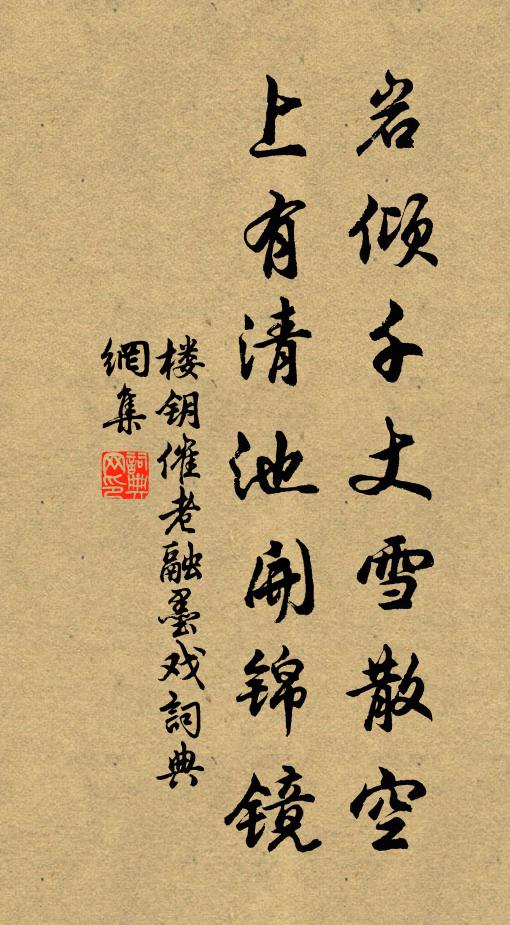 岩倾千丈雪散空
上有清池開锦镜
楼钥催老融墨戏詞典
網集
詞典网印